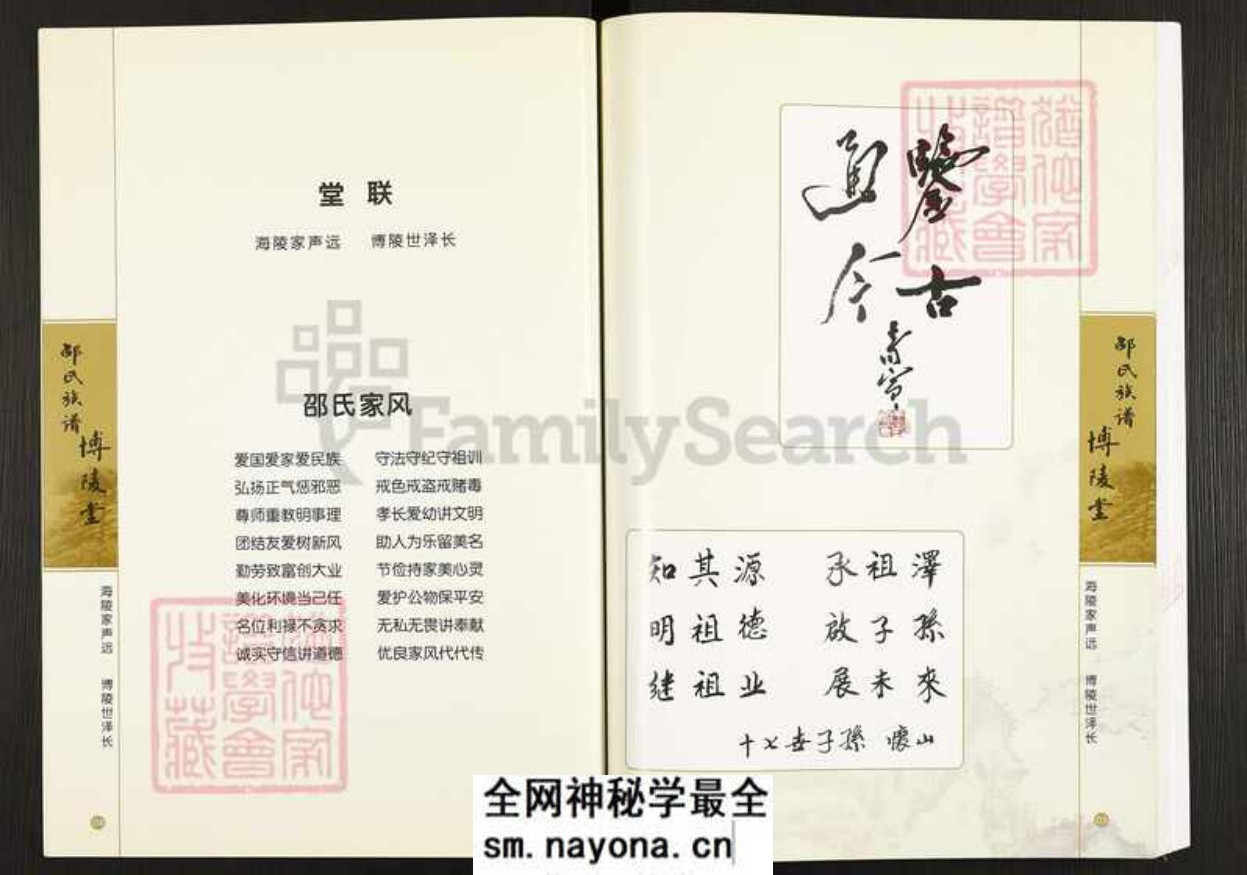 堂 联
海陵家声远 博陵世泽长
邵氏家风
爱国爱家爱民族 守法守纪守祖训
弘扬正气惩邪恶 戒色戒盗戒赌毒
尊师重教明事理 孝长爱幼讲文明
团结友爱树新风 助人为乐留美名
勤劳致富创大业 节俭持家美心灵
美化环境当己任 爱护公物保平安
名位利禄不贪求 无私无畏讲奉献
诚实守信讲道德 优良家风代代传
邵氏族谱
博陵堂
海陵家声远 博陵世泽长
FamilySearch
鑒古
通今
知其源 承祖澤
明祖德 啟子孫
继祖业 展未來
十七世子孫 懷山
邵氏族谱
博陵堂
海陵家声远 博陵世泽长
全网神秘学最全
sm.nayona.cn